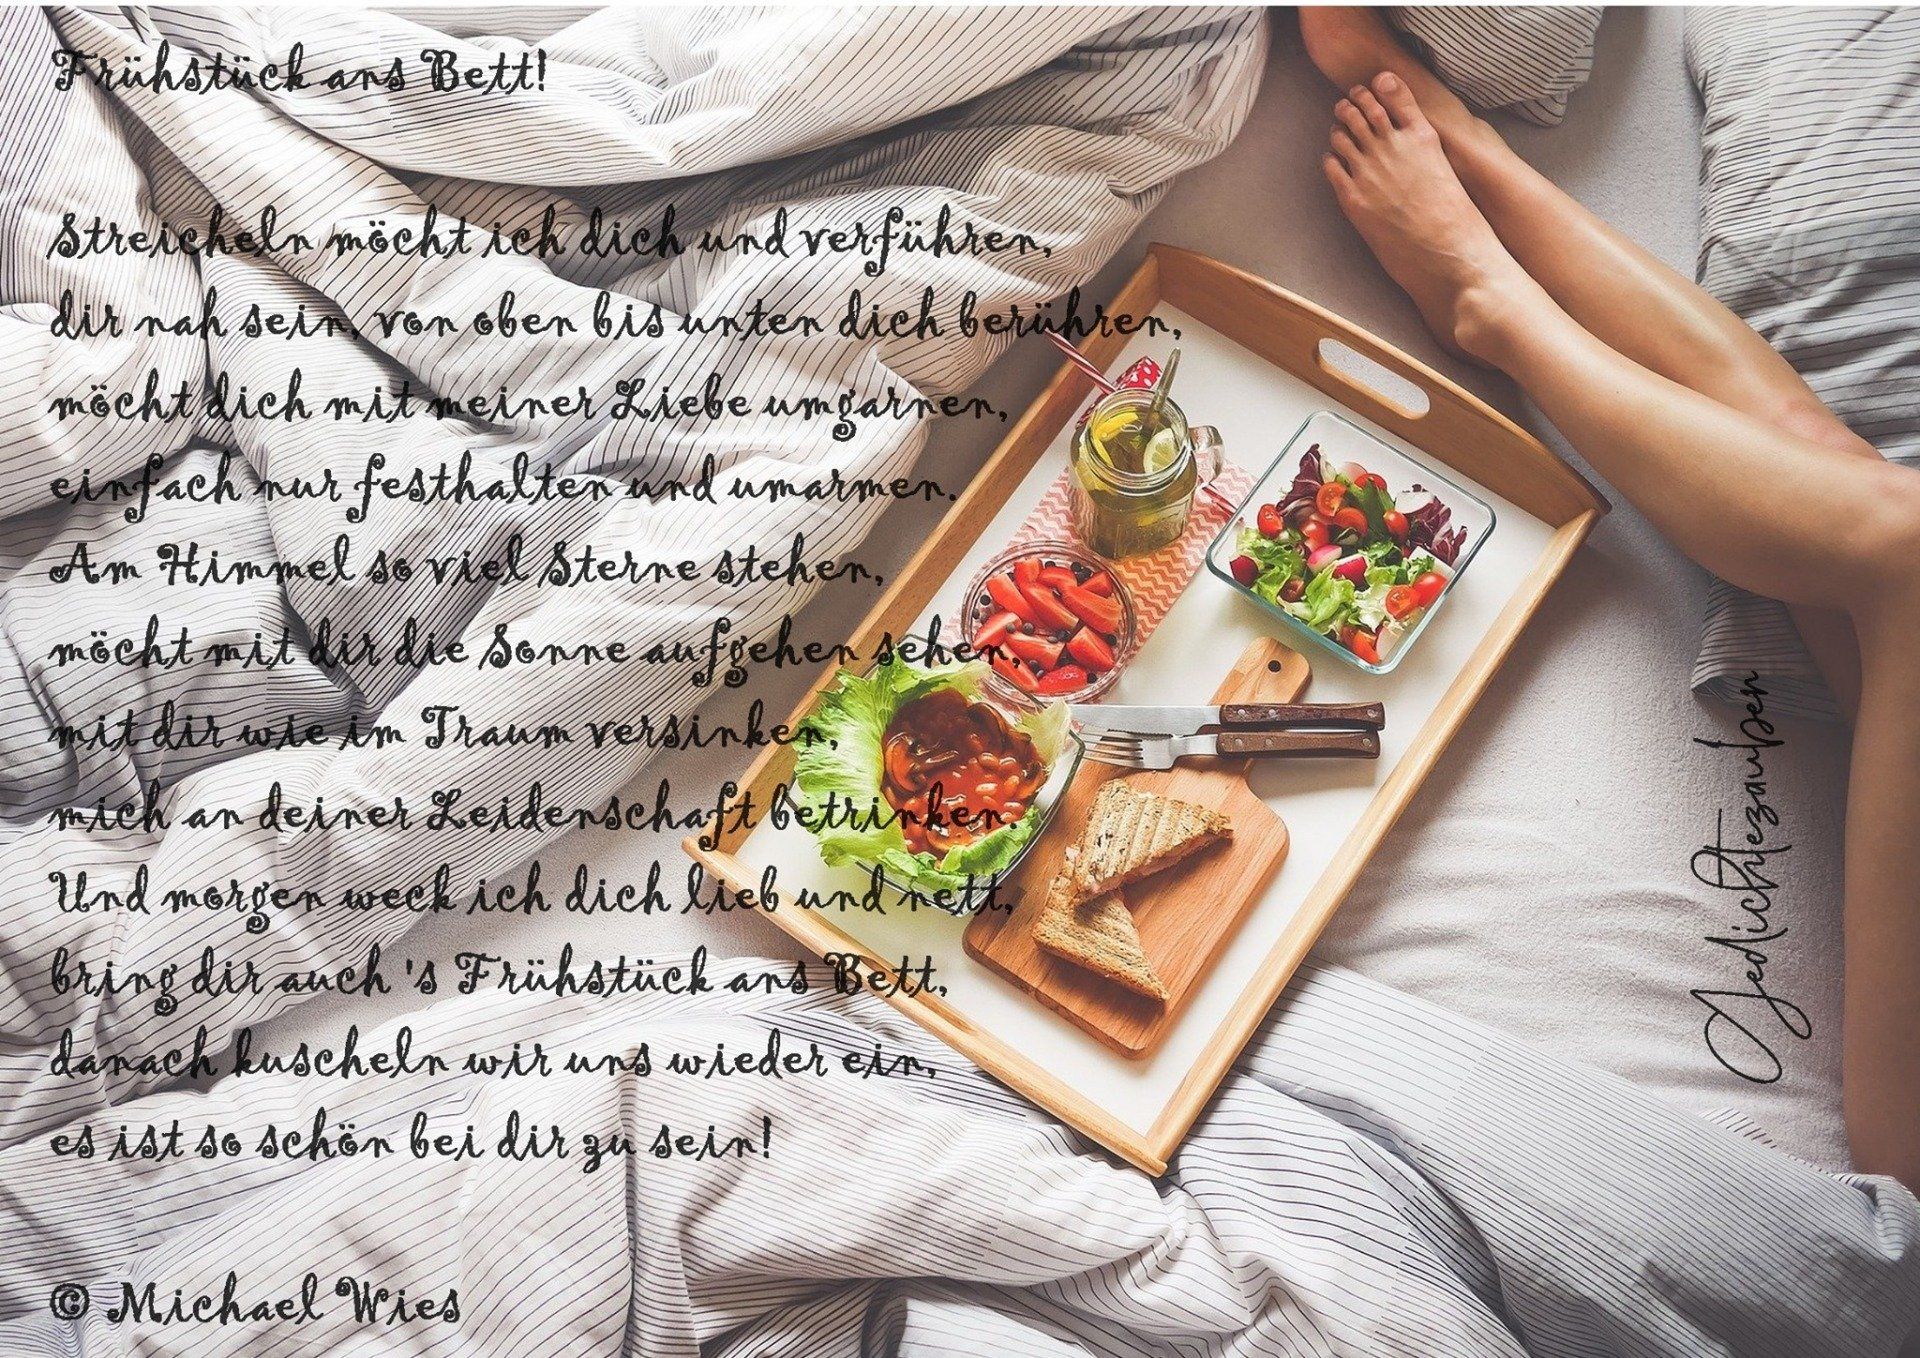 Frühstück ans Bett!
Streicheln möcht ich dich und verführen,
dir nah sein, von oben bis unten dich berühren,
möcht dich mit meiner Liebe umgarnen,
einfach nur festhalten und umarmen.
Am Himmel so viel Sterne stehen,
möcht mit dir die Sonne aufgehen sehen,
mit dir wie im Traum versinken,
mich an deiner Leidenschaft betrinken.
Und morgen weck ich dich lieb und nett,
bring dir auch 's Frühstück ans Bett,
danach kuscheln wir uns wieder ein,
es ist so schön bei dir zu sein!
© Michael Wies
Gedichtezauber